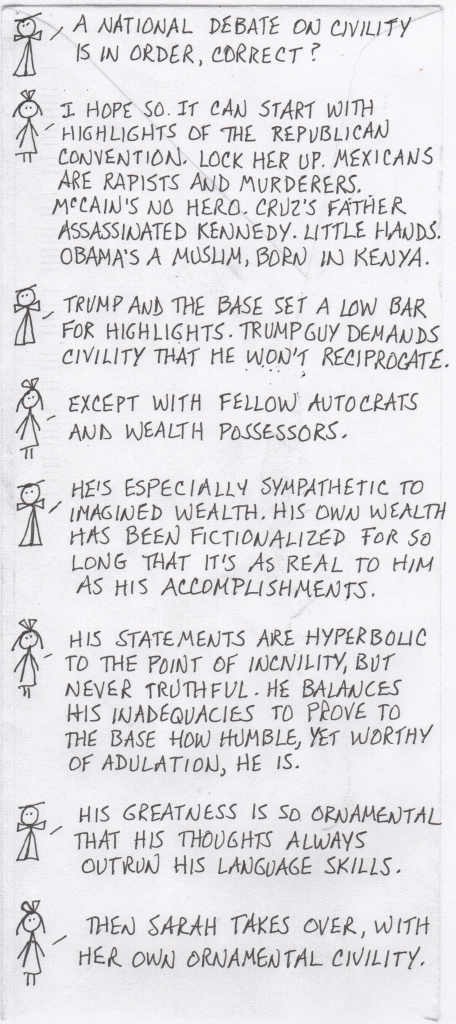 A NATIONAL DEBATE ON CIVILITY
IS IN ORDER, CORRECT?
I HOPE SO. IT CAN START WITH
HIGHLIGHTS OF THE REPUBLICAN
CONVENTION. LOCK HER UP. MEXICANS
ARE RAPISTS AND MURDERERS.
McCAIN'S NO HERO. CRUZ'S FATHER
ASSASSINATED KENNEDY. LITTLE HANDS.
OBAMA'S A MUSLIM, BORN IN KENYA.
TRUMP AND THE BASE SET A LOW BAR
FOR HIGHLIGHTS. TRUMP GUY DEMANDS
CIVILITY THAT HE WON'T RECIPROCATE.
EXCEPT WITH FELLOW AUTOCRATS
AND WEALTH POSSESSORS.
HE'S ESPECIALLY SYMPATHETIC TO
IMAGINED WEALTH. HIS OWN WEALTH
HAS BEEN FICTIONALIZED FOR SO
LONG THAT IT'S AS REAL TO HIM
AS HIS ACCOMPLISHMENTS.
HIS STATEMENTS ARE HYPERBOLIC
TO THE POINT OF INCIVILITY, BUT
NEVER TRUTHFUL. HE BALANCES
HIS INADEQUACIES TO PROVE TO
THE BASE HOW HUMBLE, YET WORTHY
OF ADULATION, HE IS.
HIS GREATNESS IS SO ORNAMENTAL
THAT HIS THOUGHTS ALWAYS
OUTRUN HIS LANGUAGE SKILLS.
THEN SARAH TAKES OVER, WITH
HER OWN ORNAMENTAL CIVILITY.